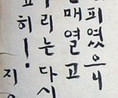 피였으니
매열고
리는다시
히!
지